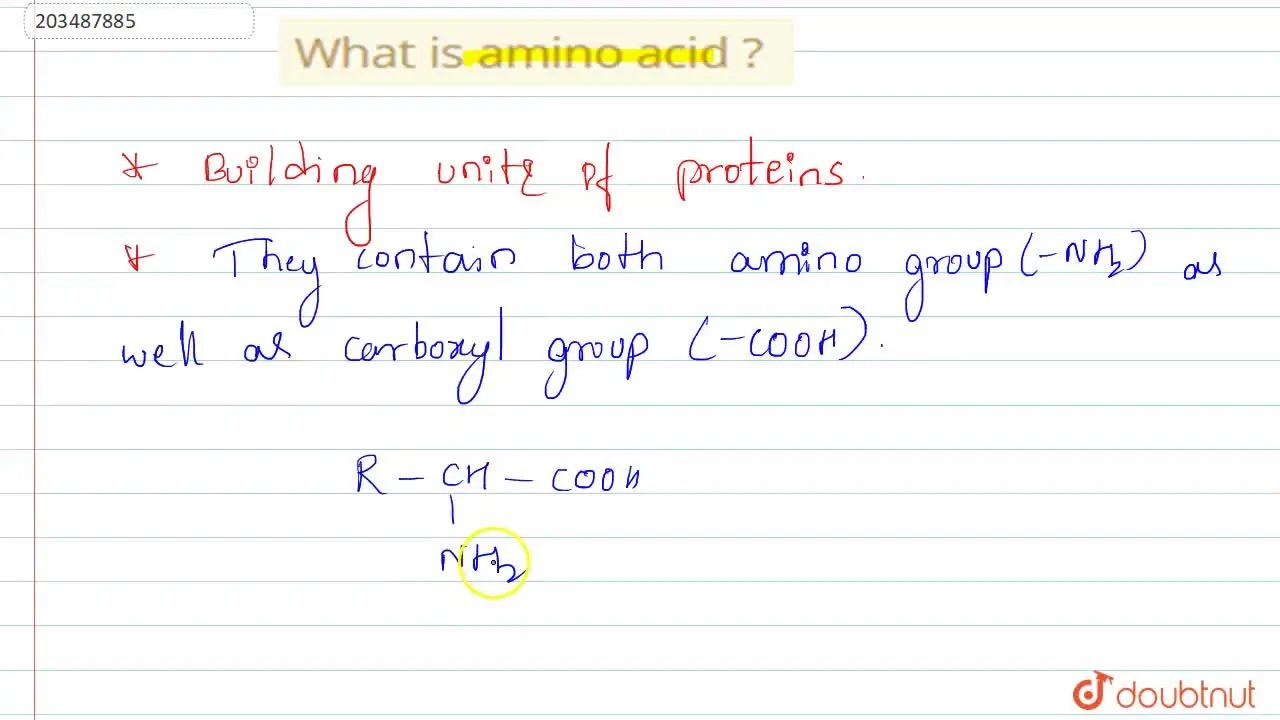 203487885
What is amino acid ?
* Building units of proteins.
* They contain both amino group (-NH2) as
well as carboxyl group (-COOH).
R - CH - COOH
|
NH2
doubtnut